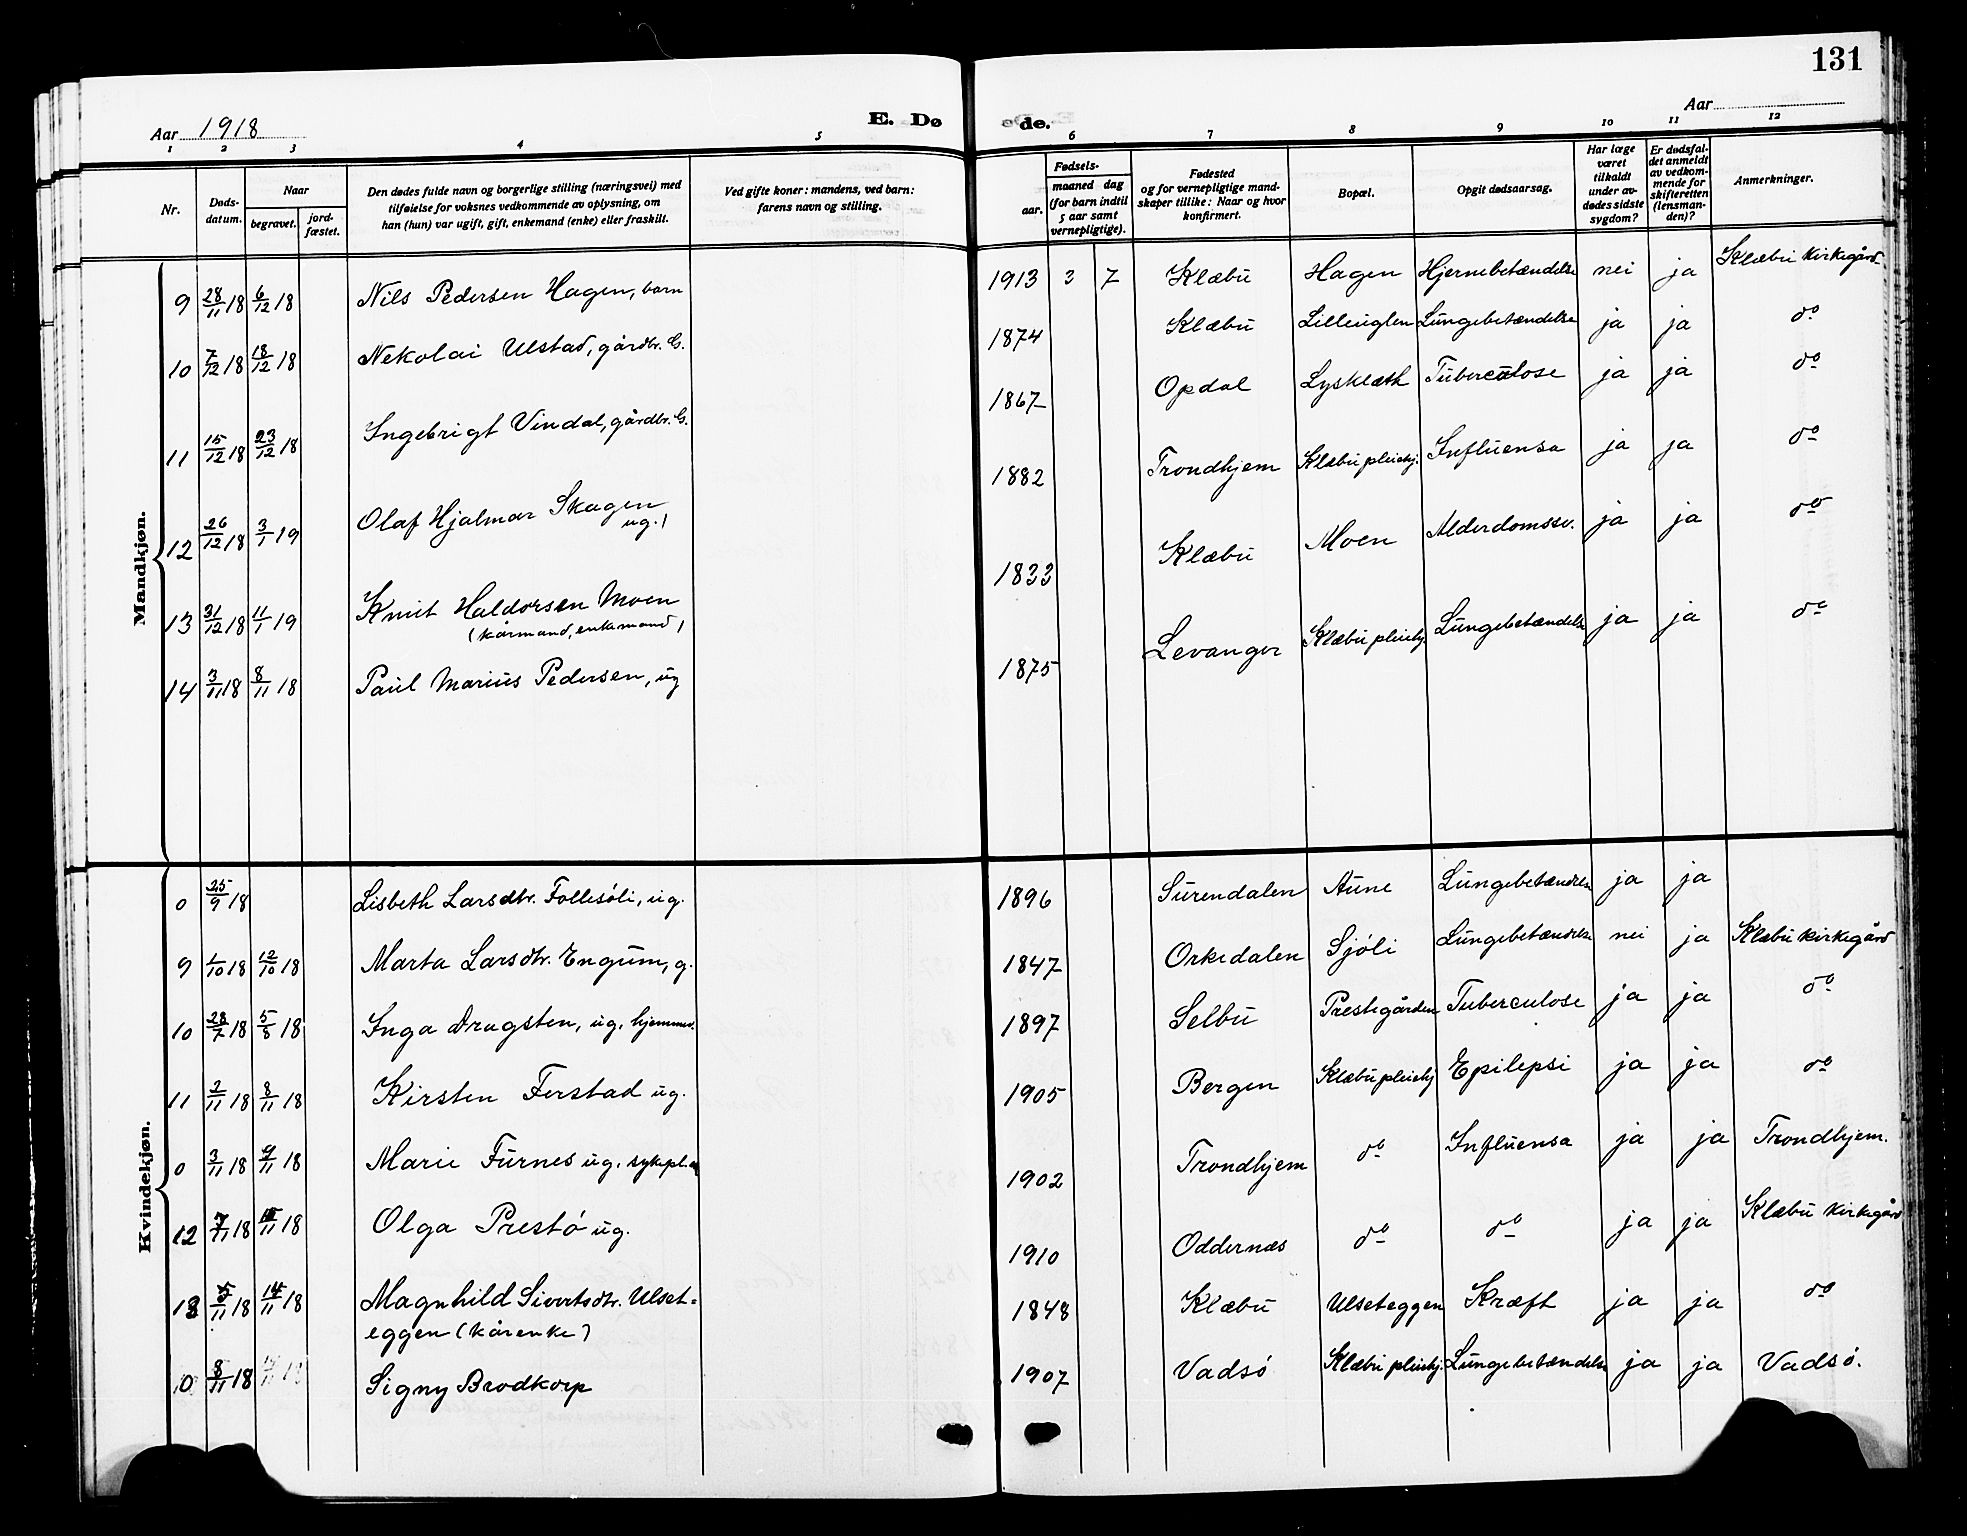 131
Aar 1918
E. Dø
de.
Aar
1 2 3 4 5 6 7 8 9 10 11 12
Nr.
Døds-
datum.
Naar
begravet.
jord-
fæstet.
Den dødes fulde navn og borgerlige stilling (næringsvei) med
tilføielse for voksnes vedkommende av oplysning, om
han (hun) var ugift, gift, enkemand (enke) eller fraskilt.
Ved gifte koner: mandens, ved barn:
farens navn og stilling.
Fødsels-
aar.
maaned dag
(for barn indtil
5 aar samt
vernepligtige).
Fødested
og for vernepligtige mand-
skaper tillike: Naar og hvor
konfirmert.
Bopæl.
Opgit dødsaarsag.
Har læge
været
tilkaldt
under av-
dødes sidste
sygdom?
Er dødsfal-
det anmeldt
av vedkom-
mende for
skifteretten
(lensman-
den)?
Anmerkninger.
Mandkjøn.
9 28/11 18 6/12 18 Nils Pedersen Hagen, barn 1913 3 7 Klæbu Hagen Hjernebetændelse nei ja Klæbu kirkegård
10 7/12 18 18/12 18 Nekolai Ulstad, gårdbr. G. 1874 Klæbu Lilleuglen Lungebetændelse ja ja do
11 15/12 18 23/12 18 Ingebrigt Vindal, gårdbr. G. 1867 Opdal Lysklæth Tuberculose ja ja do
12 26/12 18 3/1 19 Olaf Hjalmar Skagen
ug.) 1882 Trondhjem Klæbu pleiehj. Influensa ja ja do
13 31/12 18 11/1 19 Knut Haldorsen Moen
(kårmand, enkemand) 1833 Klæbu Moen Alderdomssv. ja ja do
14 3/11 18 8/11 18 Paul Marius Pedersen, ug 1875 Levanger Klæbu pleiehj Lungebetændelse ja ja do
Kvindekjøn.
0 25/9 18 Lisbeth Larsdtr. Follesöli, ug. 1896 Surendalen Aune Lungebetændelse ja ja
9 1/10 18 12/10 18 Marta Larsdtr. Engum, g. 1847 Orkedalen Sjöli Lungebetændelse nei ja Klæbu kirkegård
10 28/7 18 5/8 18 Inga Dragsten, ug. hjemmev. 1897 Selbu Prestegården Tuberculose ja ja do
11 2/11 18 8/11 18 Kirsten Ferstad ug. 1905 Bergen Klæbu pleiehj Epilepsi ja ja do
0 3/11 18 9/11 18 Marie Furnes ug. 1902 Trondhjem do Influensa ja ja Trondhjem.
12 7/11 18 18 Olga Prestö ug. 1910 Oddernæs do do ja ja Klæbu kirkegård
13 5/11 18 14/11 18 Magnhild Sivertsdtr. Ulset-
eggen (kårenke) 1848 Klæbu Ulseteggen Kræft ja ja do
0 8/11 18 Signy Brodkorp 1907 Vadsö Klæbu pleiehj. Lungebetændelse ja ja Vadsö.